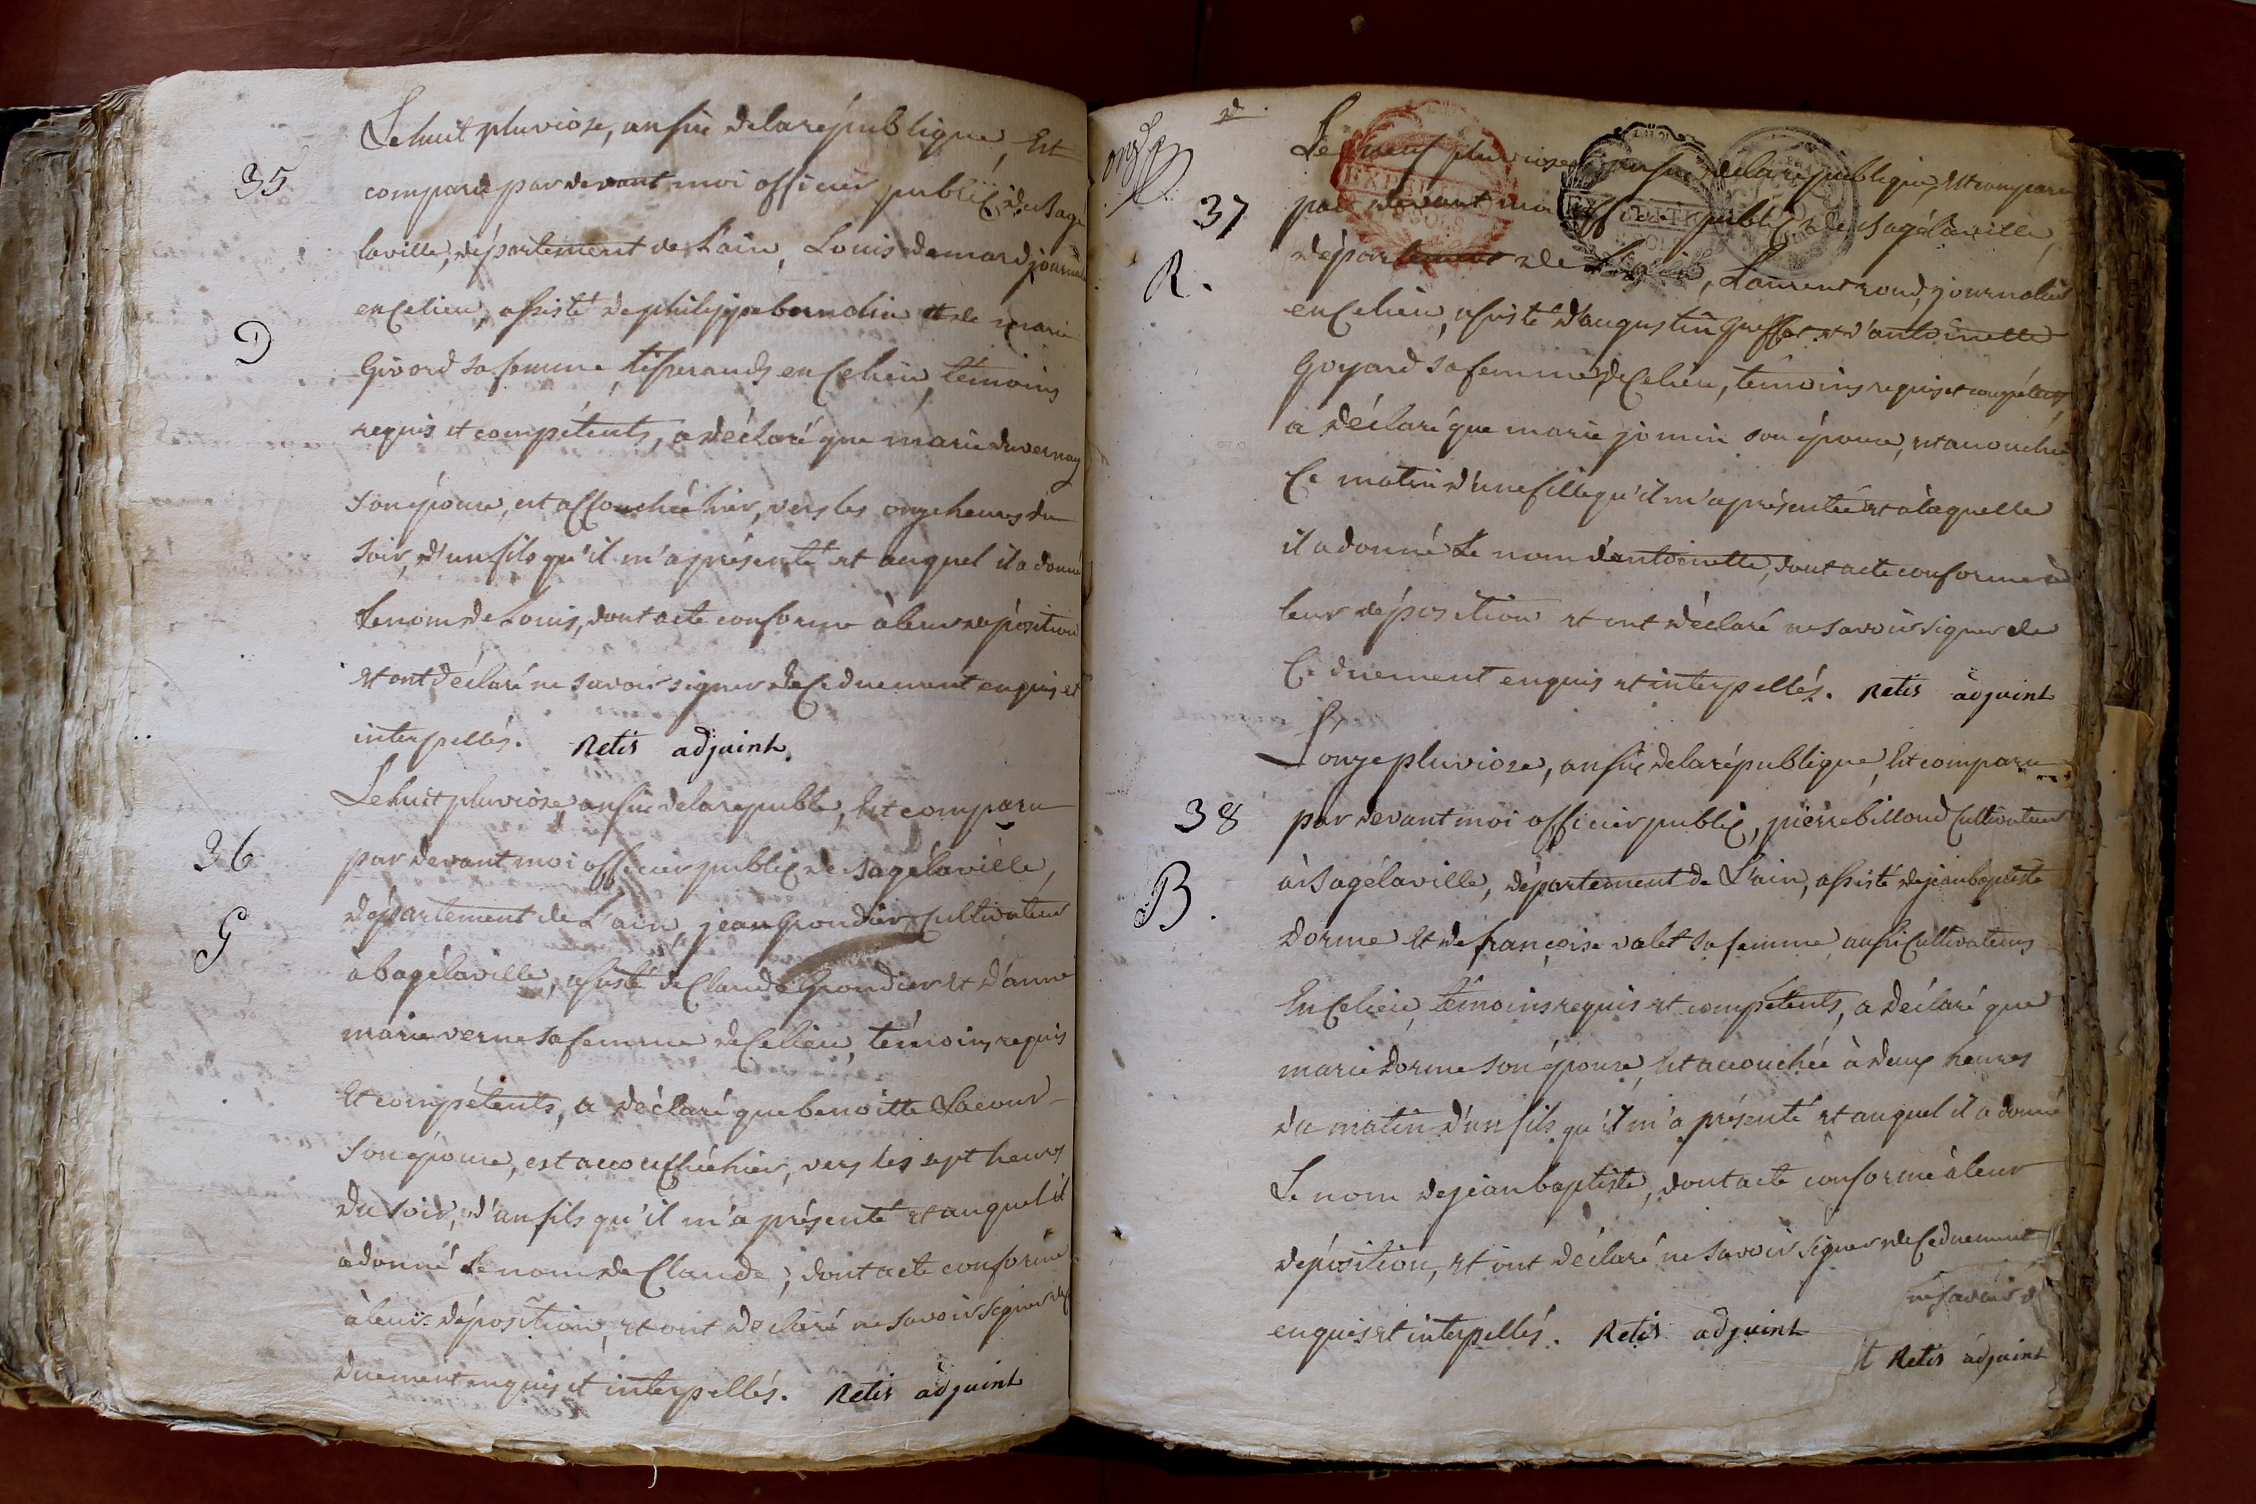 35
D
Le huit pluviose, an six de la république, Est
comparu par devant moi officier public de Bagé
laville, département de L'ain, Louis Damard, journalier
en Ce lieu, assisté de philippe bernolin et de marie
Givord sa femme, tisserands en Ce lieu, témoins
requis et compétents, a déclaré que marie duvernay
son épouse, est accouchée hier, vers les onze heures du
soir, d'un fils qu'il m'a présenté et auquel il a donné
le nom de Louis, dont acte conforme à leur déposition
et ont déclaré ne savoir signer de Ce duement enquis et
interpellés. Retis adjoint
36
G
Le huit pluviose, an six de la republ, Est comparu
par devant moi officier public de Bagélaville,
département de L'ain, jean Grondier Cultivateur
a bagélaville, assisté de Claude Grondier et d'anne
marie verne sa femme de Ce lieu, témoins requis
Et compétents, a déclaré que benoitte Lacour
son épouse, est accouchée hier, vers les sept heures
du soir, d'un fils qu'il m'a présenté et auquel il
a donné le nom de Claude, dont acte conforme
à leur déposition, et ont déclaré ne savoir signer de Ce
duement enquis et interpellés. Retis adjoint
37
R.
Le neuf pluviose, an six de la république, est comparu
par devant moi officier public de Bagélaville,
département de L'ain, Laurent rond, journalier
en Ce lieu, assisté d'augustin Greffet et d'antoinette
Goyard sa femme, de Ce lieu, témoins requis et compétents
a déclaré que marie jomin son épouse, est accouchée
Ce matin d'une fille qu'il m'a présentée et à laquelle
il a donné le nom d'antoinette, dont acte conforme à
leur déposition et ont déclaré ne savoir signer de
Ce duement enquis et interpellés. Retis adjoint
38
B.
L'onze pluviose, an six de la république, Est comparu
par devant moi officier public, pierre billoud Cultivateur
à Bagélaville, département de L'ain, assisté de jean baptiste
dorme et de françoise valet sa femme, aussi Cultivateurs
En Ce lieu, témoins requis et compétents, a déclaré que
marie dorme son épouse, Est accouchée à deux heures
du matin d'un fils qu'il m'a présenté et auquel il a donné
Le nom de jean baptiste, dont acte conforme à leur
déposition, et ont déclaré ne savoir signer de Ce duement
enquis et interpellés. Retis adjoint
ne savoir
et Retis adjoint